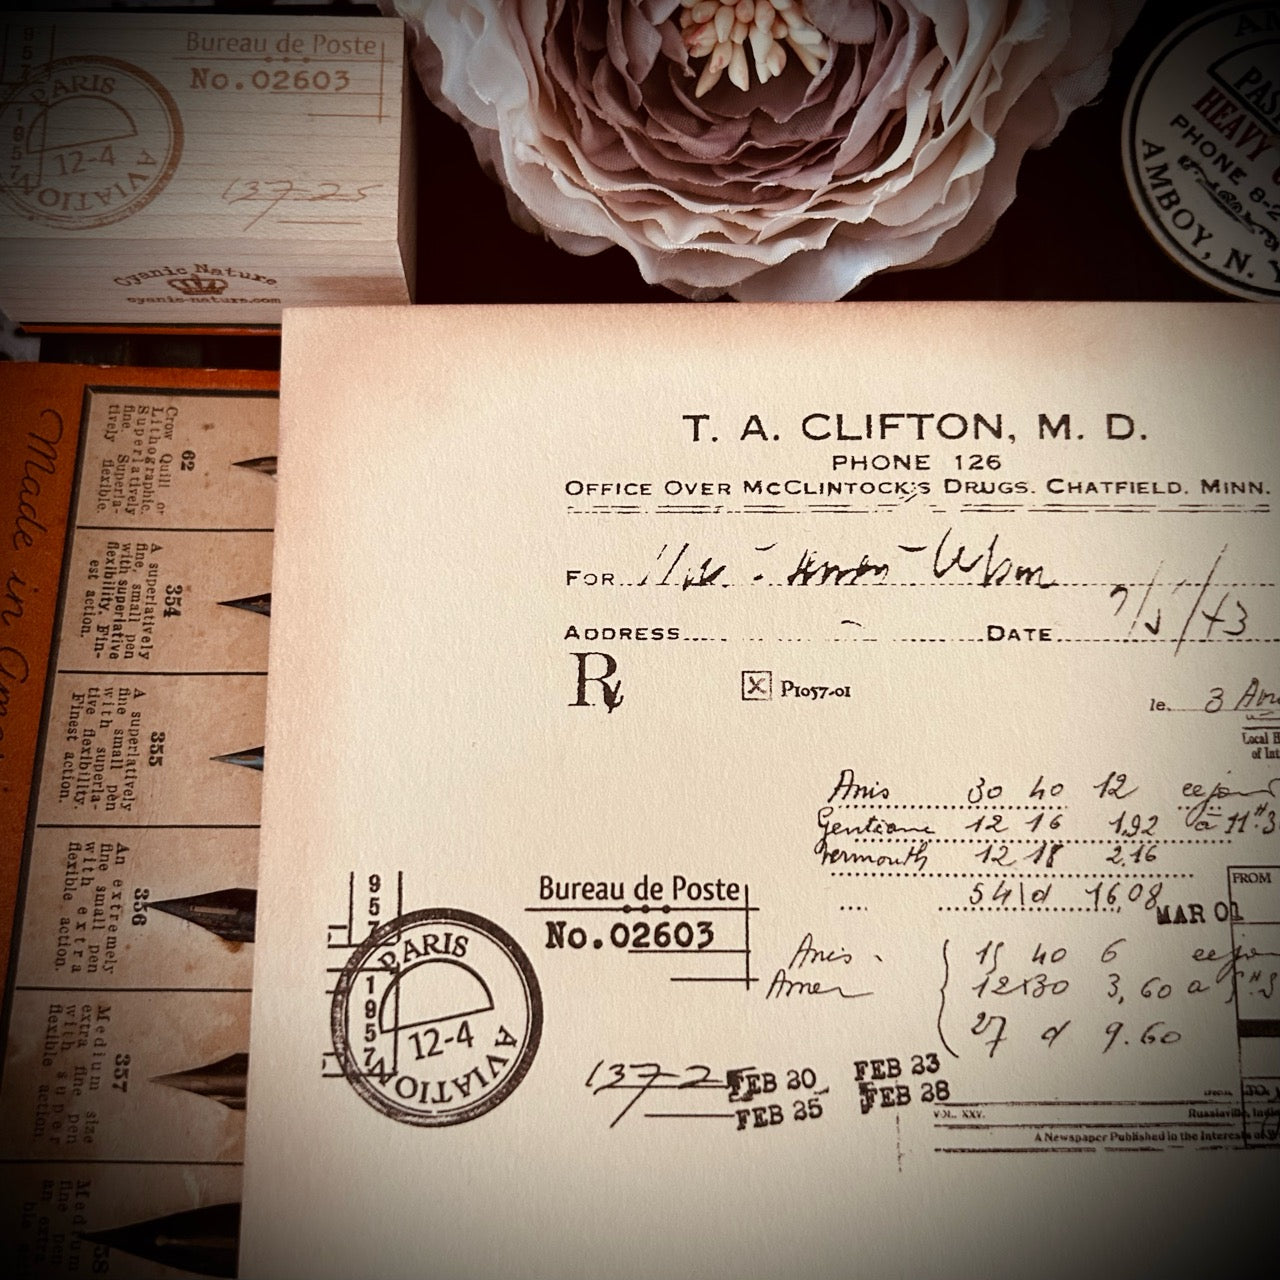 Bureau de Poste
No.02603
PARIS
AVIATION
12-4
1957
957
137-25
Cyanic Nature
cyanic-nature.com
PHONE 8-2
HEAVY
AMBOY, N.
Made in
62
Crow Quill or
Lithographic.
Superlatively
fine. Superla-
tively flexible.
354
A superlatively
fine, small pen
with superlative
flexibility. Fin-
est action.
355
A superlatively
fine small pen
with superla-
tive flexibility.
Finest action.
356
An extremely
fine small pen
with extra
flexible action.
357
Medium size
extra fine pen
with super
flexible action
58
Medium
fine pen
an extra
ble
T. A. CLIFTON, M. D.
PHONE 126
OFFICE OVER MCCLINTOCK'S DRUGS. CHATFIELD. MINN.
FOR
ADDRESS DATE /43
Rx
X P1057-01
le. 3
Local
of Int
Anis 30 40 12
Gentiane 12 16 1,92 à 11.#3
Vermouth 12 18 2,16
54 d 16,08
MAR 01
FROM
Anis 15 40 6
Amer 12x30 3,60 a
27 d 9.60
Bureau de Poste
No.02603
957
PARIS
AVIATION
12-4
1957
137-2
FEB 20
FEB 25
FEB 23
FEB 28
VOL. XXV. Russiaville, Indi
A Newspaper Published in the Interests of
TO